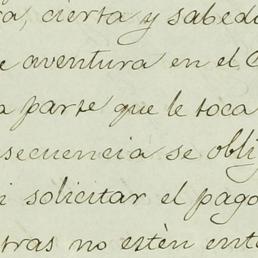 a, cierta y sabedo
e aventura en el C
a parte que le toca
secuencia se obli
i solicitar el pago
tras no estèn ente